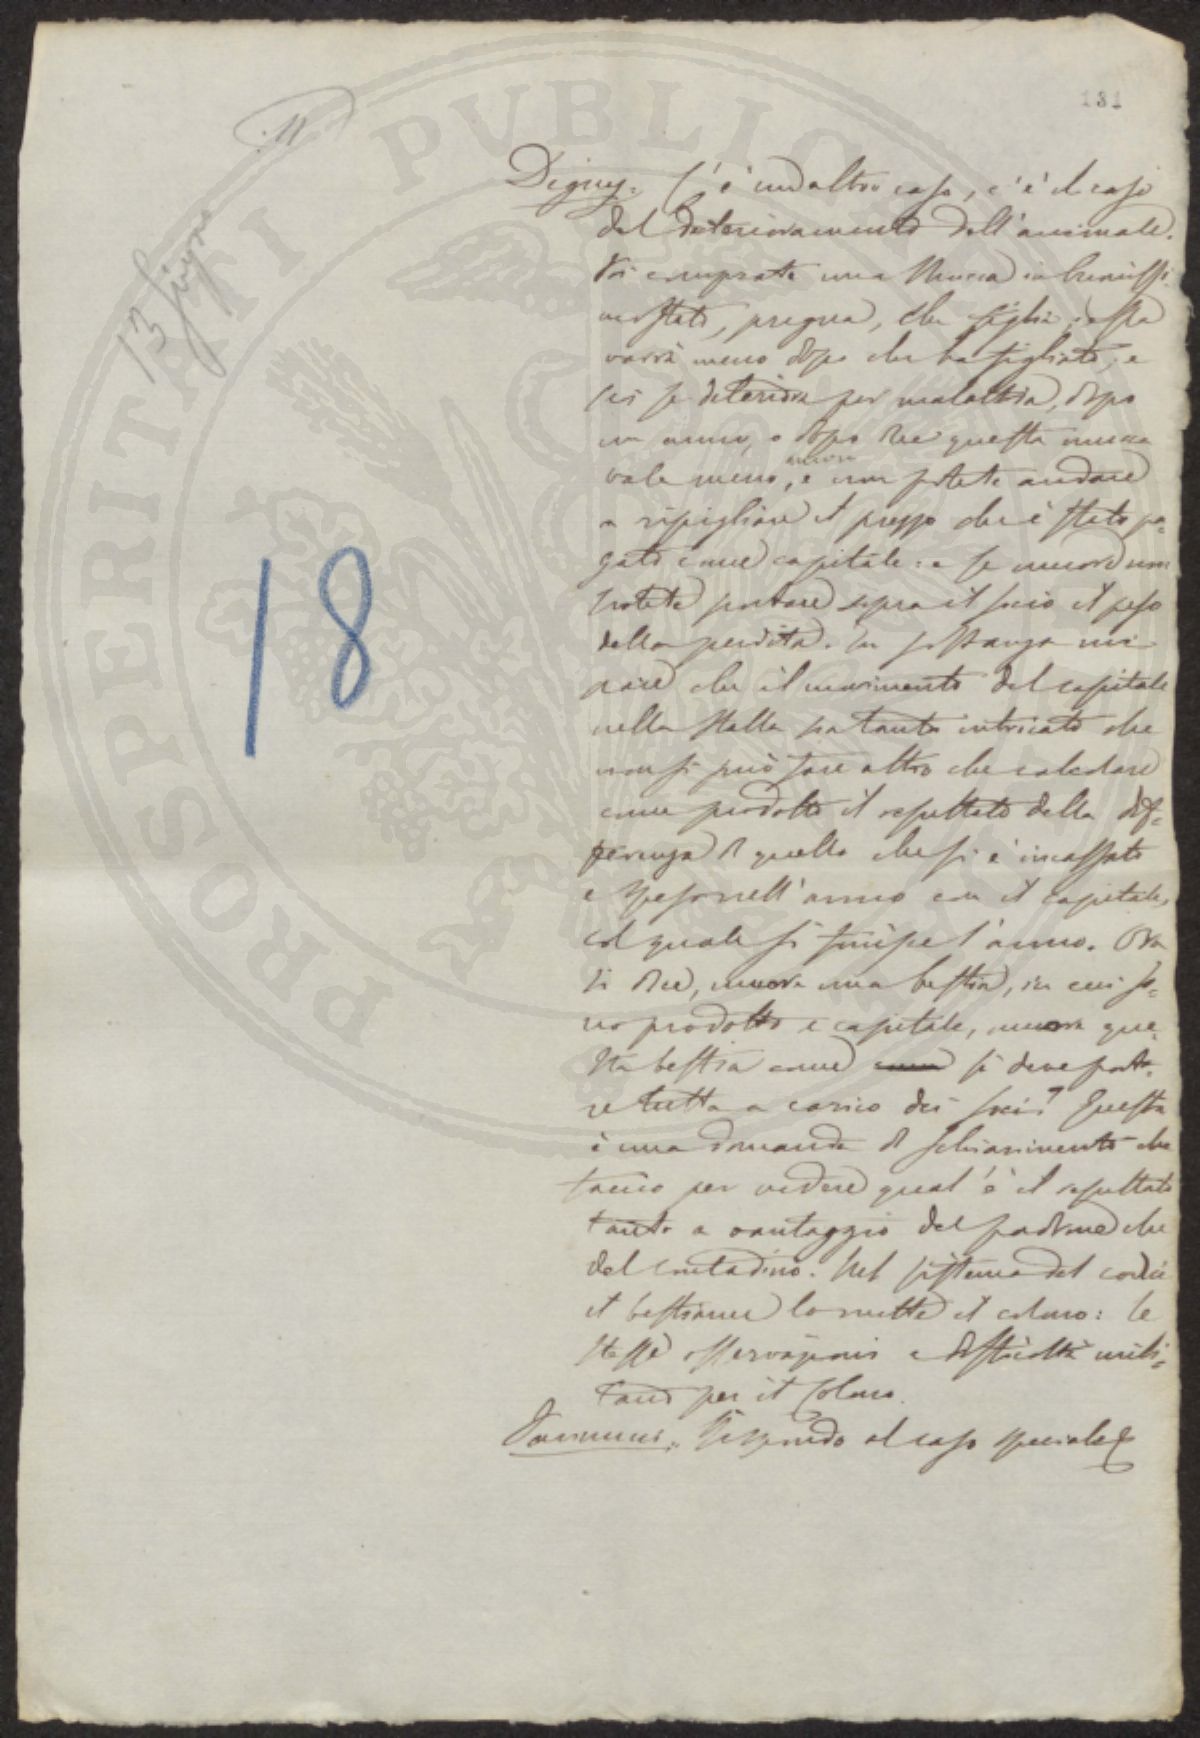 131
11
13 giugno
18
Digny. C'è un altro caso, c'è il caso
del deterioramento dell'animale.
Voi comprate una Mucca in buonissi
mo stato, pregna, che figlia: essa
varrà meno dopo che ha figliato, e
poi se deteriora per malattia, dopo
un anno, o dopo due questa mucca
vale meno, e non potete andare
a ripigliare il prezzo che è stato pa=
gato come capitale: e se muore non
potete portare sopra il socio il peso
della perdita. In sostanza mi
pare che il movimento del capitale
nella stalla sia tanto intricato che
non si può fare altro che calcolare
come prodotto il resultato della dif=
ferenza di quello che si è incassato
e speso nell'anno con il capitale,
col quale si finisce l'anno. Ora
si dice, muore una bestia, in cui so=
no prodotto e capitale, muore que=
sta bestia come si deve porta=
re tutta a carico dei soci? Questa
è una domanda di schiarimento che
faccio per vedere qual'è il resultato
tanto a vantaggio del padrone che
del contadino. Nel sistema del codice
il bestiame lo mette il colono: le
stesse osservazioni e difficoltà mili=
tano per il Colono.
Rispondo al caso speciale
PROSPERITATI PUBLICAE